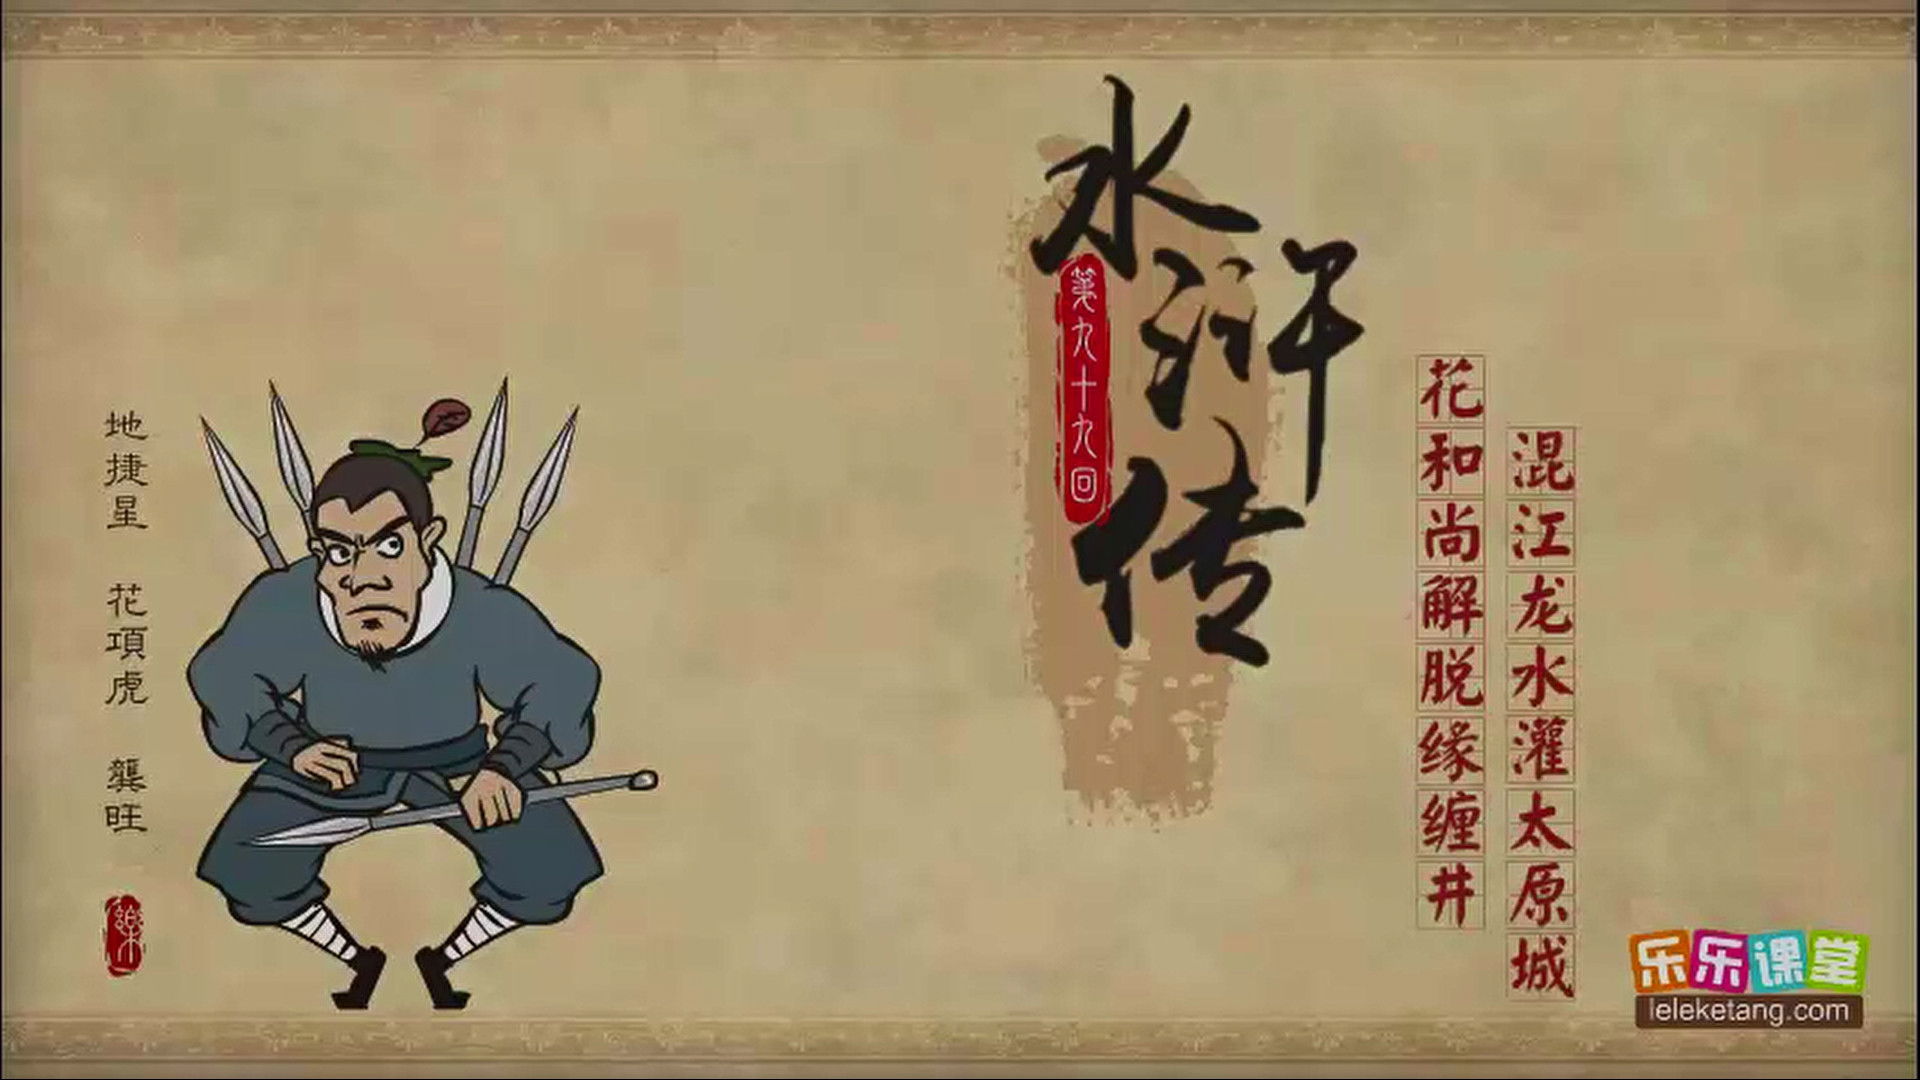 水浒传
第九十九回
花和尚解脱缘缠井
混江龙水灌太原城
地捷星 花項虎 龔旺
樂
乐乐课堂
leleketang.com